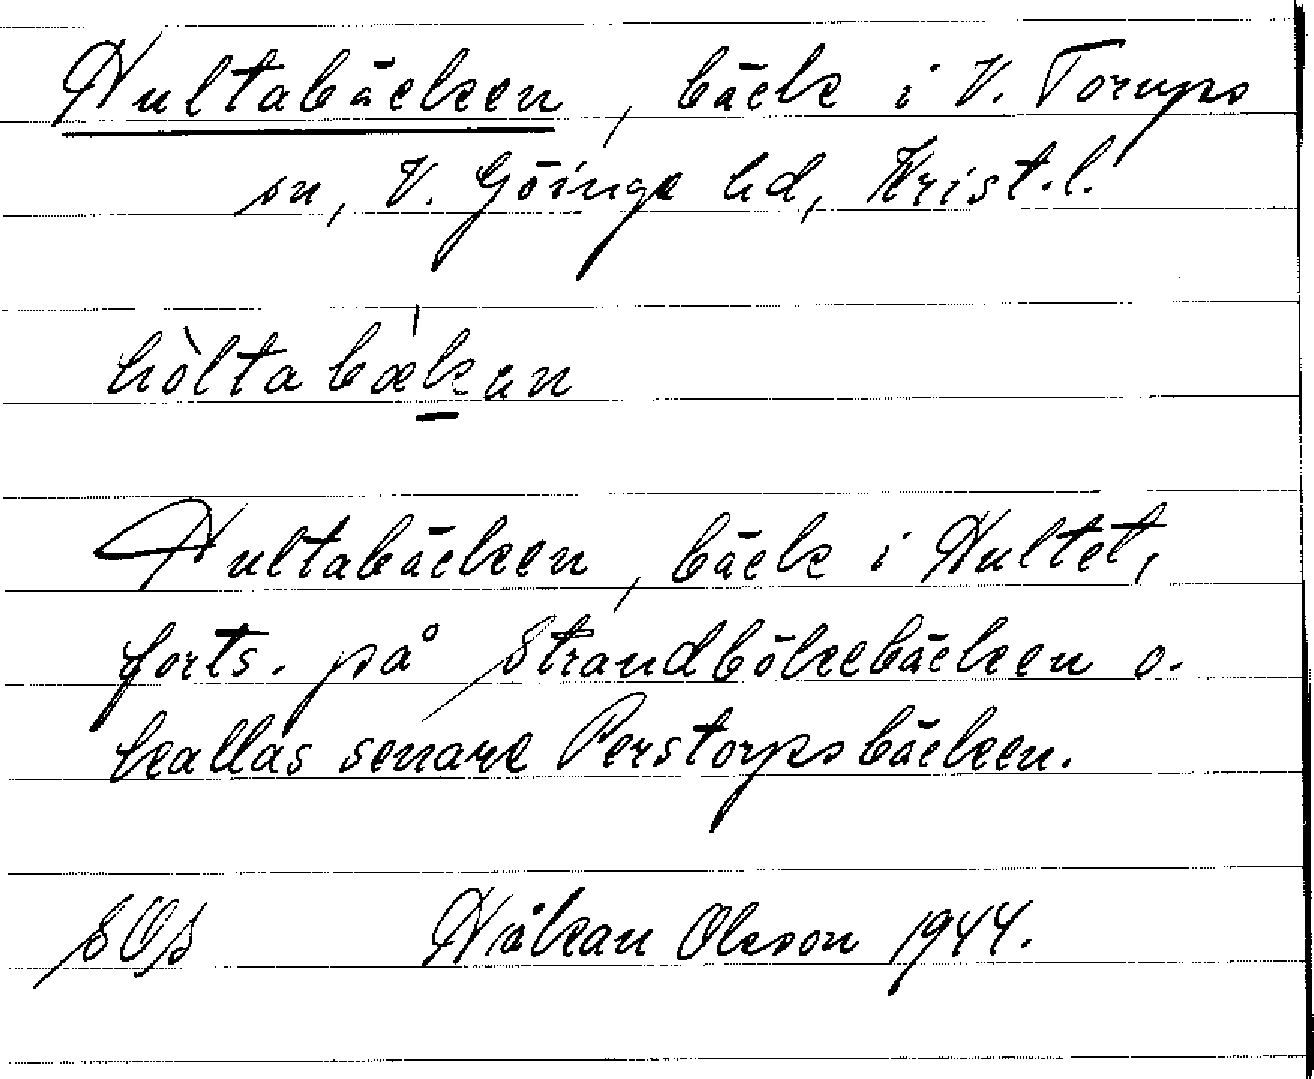 Hultabäcken, bäck i V. Torups
sn, V. Göinge hd, Krist.l.
hòltabækan
Hultabäcken, bäck i Hultet,
forts. på Strandbökebäcken o.
kallas senare Perstorpsbäcken.
SOS Håkan Olsson 1944.